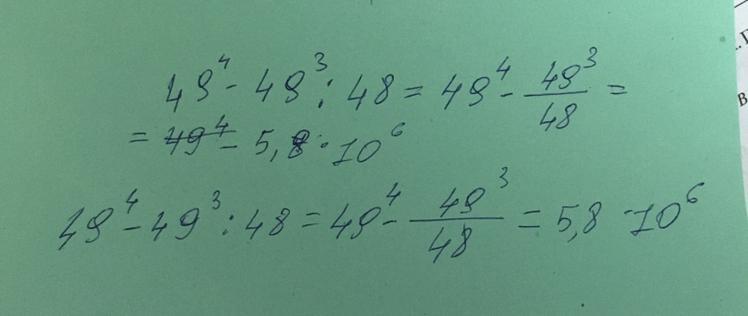 49⁴ - 49³ : 48 = 49⁴ - 49³/48 =
= 49⁴ - 5,8 · 10⁶
49⁴ - 49³ : 48 = 49⁴ - 49³/48 = 5,8 · 10⁶